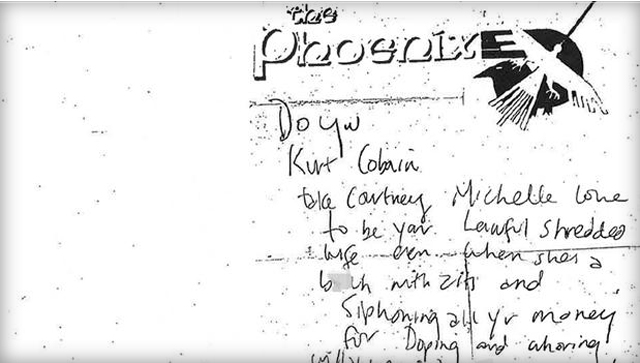 the
Phoenix
Do you
Kurt Cobain
take Cortney Michelle Love
to be your Lawful shredded
wife even when shes a
with zits and
siphoning all yr money
for Doping and whoring